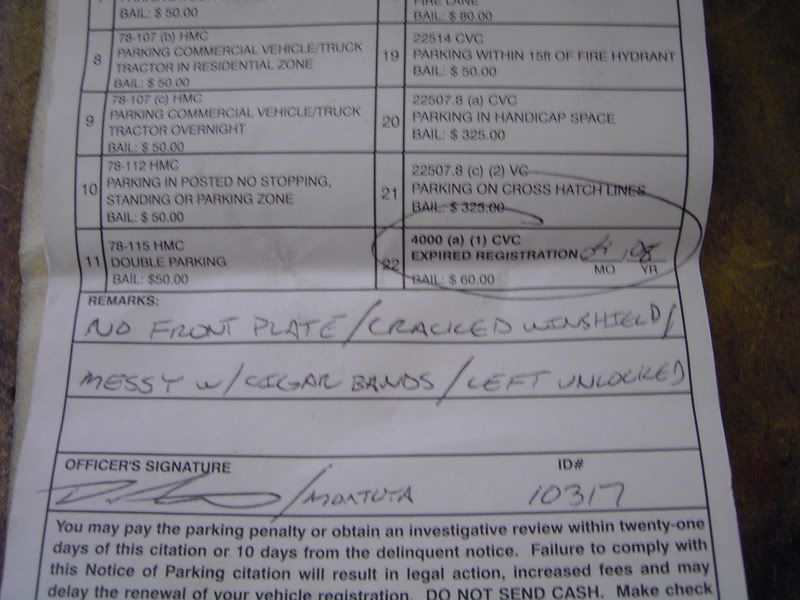 BAIL: $ 50.00
8
78-107 (b) HMC
PARKING COMMERCIAL VEHICLE/TRUCK
TRACTOR IN RESIDENTIAL ZONE
BAIL: $ 50.00
9
78-107 (c) HMC
PARKING COMMERCIAL VEHICLE/TRUCK
TRACTOR OVERNIGHT
BAIL: $ 50.00
10
78-112 HMC
PARKING IN POSTED NO STOPPING,
STANDING OR PARKING ZONE
BAIL: $ 50.00
11
78-115 HMC
DOUBLE PARKING
BAIL: $50.00
FIRE LANE
BAIL: $ 80.00
19
22514 CVC
PARKING WITHIN 15ft OF FIRE HYDRANT
BAIL: $ 50.00
20
22507.8 (a) CVC
PARKING IN HANDICAP SPACE
BAIL: $ 325.00
21
22507.8 (c) (2) VC
PARKING ON CROSS HATCH LINES
BAIL: $ 325.00
22
4000 (a) (1) CVC
EXPIRED REGISTRATION 08
MO YR
BAIL: $ 60.00
REMARKS:
NO FRONT PLATE/CRACKED WINSHIELD/
MESSY W/CIGAR BANDS/LEFT UNLOCKED
OFFICER'S SIGNATURE ID#
10317
You may pay the parking penalty or obtain an investigative review within twenty-one
days of this citation or 10 days from the delinquent notice. Failure to comply with
this Notice of Parking citation will result in legal action, increased fees and may
delay the renewal of your vehicle registration. DO NOT SEND CASH. Make check